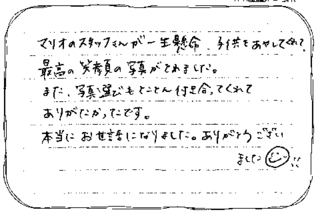 マリオのスタッフさんが一生懸命、子供をあやしてくれて、
最高の笑顔の写真がとれました。
また、写真選びもとことん付き合ってくれて
ありがたかったです。
本当にお世話になりました。ありがとうござい
ました!!